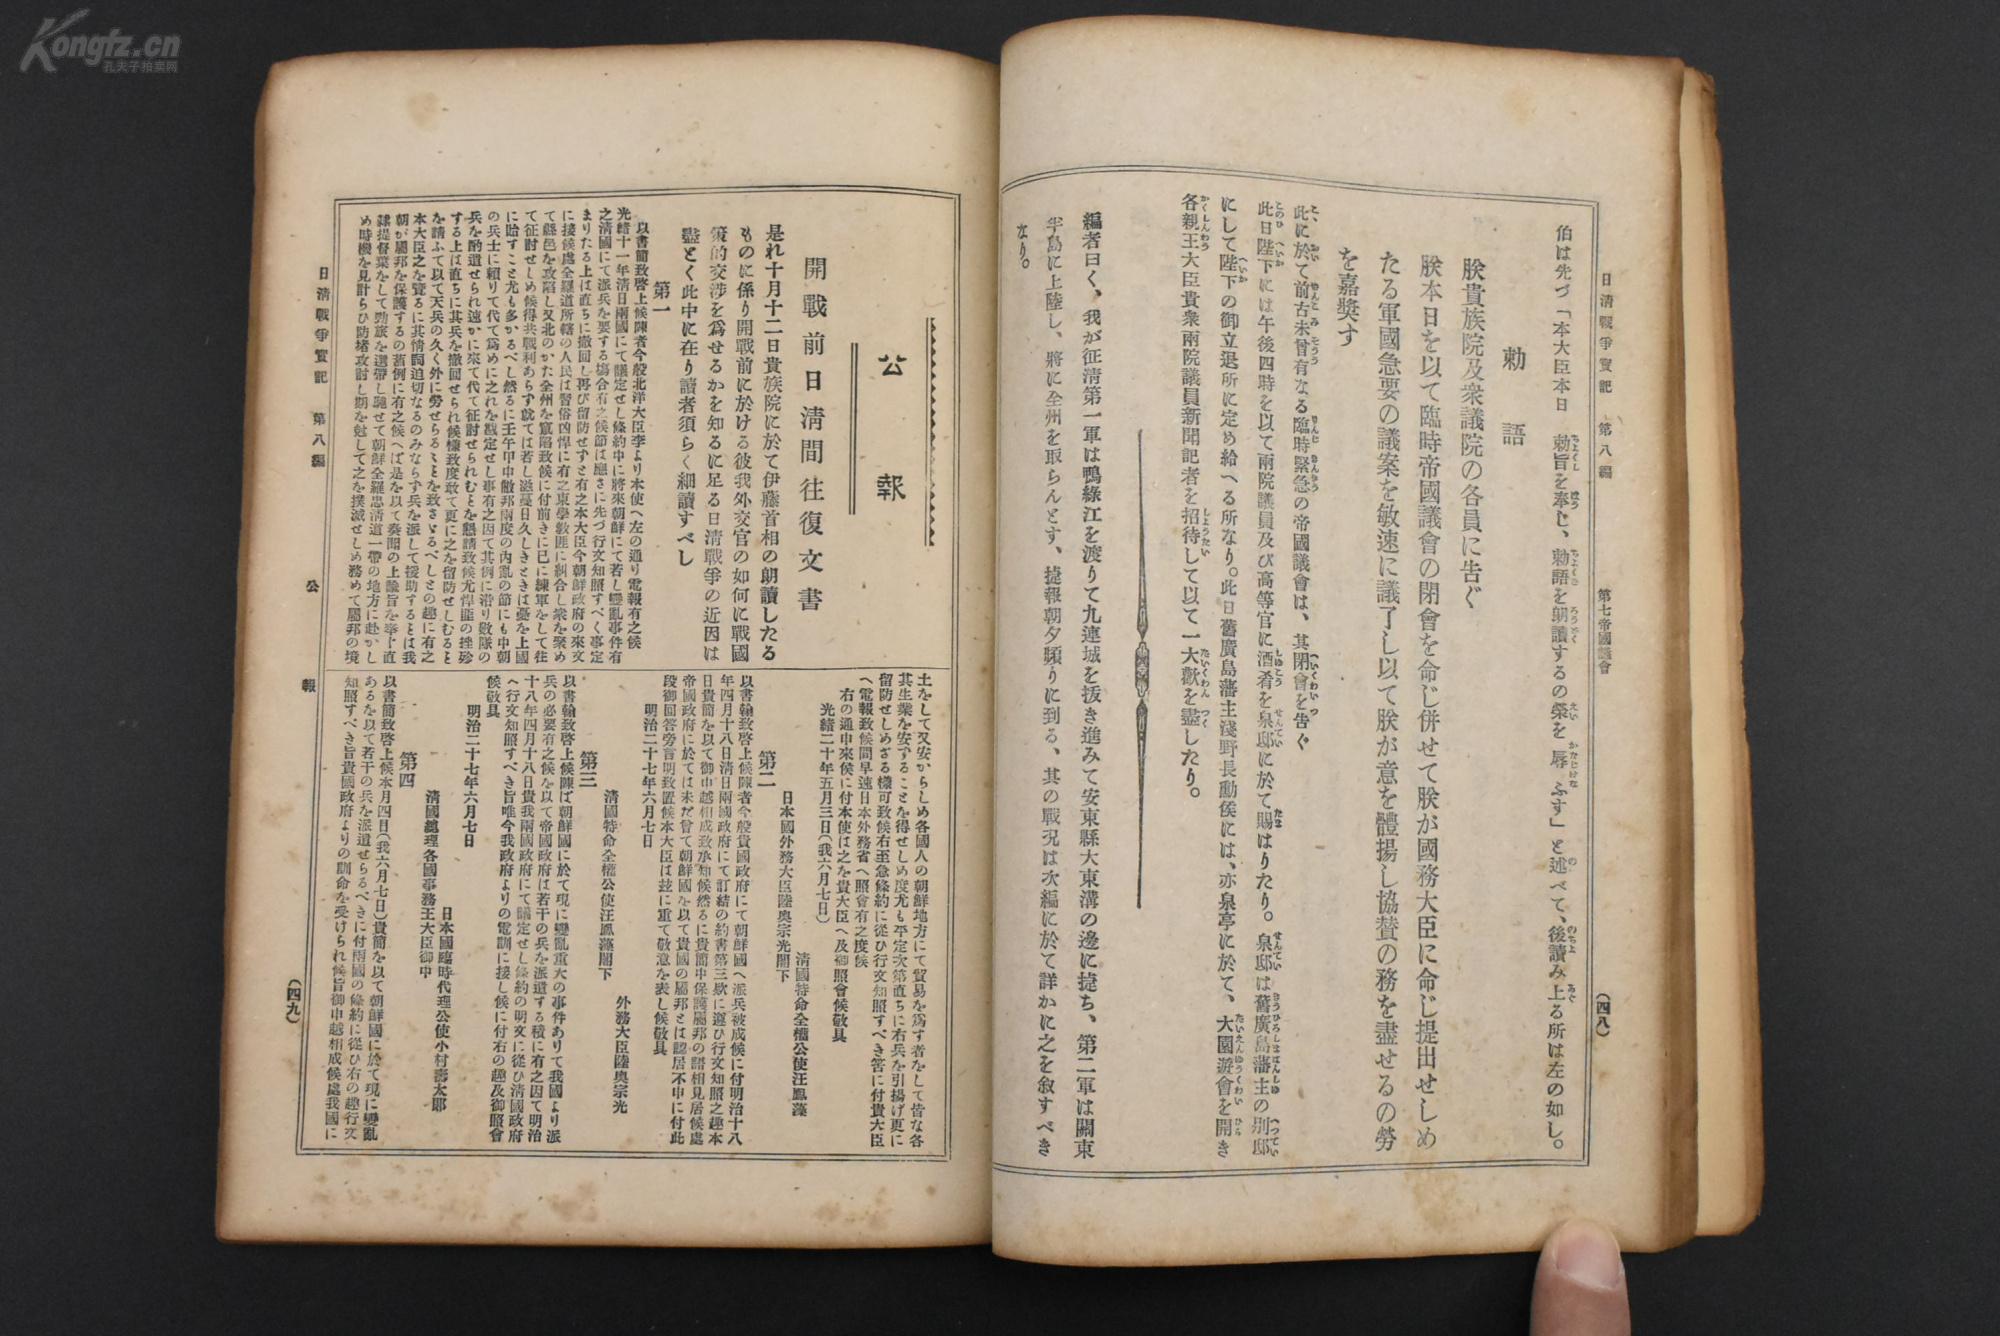 Kongfz.cn
孔夫子拍卖网
日清戰爭實記 第八編 第七帝國議會 (四八)
伯は先づ「本大臣本日 勅旨を奉じ、勅語を朗讀するの榮を辱ふす」と述べて、後讀み上る所は左の如し。
勅語
朕貴族院及衆議院の各員に吿ぐ
朕本日を以て臨時帝國議會の閉會を命じ併せて朕が國務大臣に命じ提出せしめ
たる軍國急要の議案を敏速に議了し以て朕が意を體揚し協賛の務を盡せるの勞
を嘉奬す
此に於て前古未曾有なる臨時緊急の帝國議會は、其閉會を吿ぐ
此日陛下には午後四時を以て兩院議員及び高等官に酒肴を泉邸に於て賜はりたり。泉邸は舊廣島藩主の別邸
にして陛下の御立退所に定め給へる所なり。此日舊廣島藩主淺野長勳侯には、亦泉亭に於て、大園遊會を開き
各親王大臣貴衆兩院議員新聞記者を招待して以て一大歡を盡したり。
編者曰く、我が征淸第一軍は鴨綠江を渡りて九連城を拔き進みて安東縣大東溝の邊に捷ち、第二軍は關東
半島に上陸し、將に全州を取らんとす、捷報朝夕頻りに到る、其の戰况は次編に於て詳かに之を敘すべき
なり。
公報
開戰前日淸間往復文書
是れ十月十二日貴族院に於て伊藤首相の朗讀したる
ものに係り開戰前に於ける彼我外交官の如何に戰國
策的交涉を爲せるかを知るに足る日淸戰爭の近因は
盡とく此中に在り讀者須らく細讀すべし
第一
以書簡致啓上候陳者今般北洋大臣李より本使へ左の通り電報有之候
光緖十一年淸日兩國にて議定せし條約中に將來朝鮮にて若し變亂事件有
之淸國にて派兵を要する塲合有之候節は應さに先づ行文知照すべく事定
まりたる上は直ちに撤回し再び留防せずと有之本大臣今朝鮮政府の來文
に接候處全羅道所轄の人民は習俗凶悍に有之東學敎匪に糾合し衆を聚め
て縣邑を攻陷し又北のかた全州を竄陷致候に付前きに已に練軍をして往
て征討せしめ候得共戰利あらず就ては若し滋蔓日久しきときは憂を上國
に貽すこと尤も多かるべし然るに壬午甲申敝邦兩度の內亂の節にも中朝
の兵士に賴りて代て爲めに之れを戡定せし事有之因て其例に沿り數隊の
兵を酌遣せられ速かに來て代て征討せられむとを懇請致候尤悍匪の挫殄
する上は直ちに其兵を撤回せられ候樣致度敢て更に之を留防せしむると
を請ふて以て天兵の久く外に勞せらるゝとを致さゞるべしとの趣に有之
本大臣之を覽るに其情詞迫切なるのみならず兵を派して援助するとは我
朝が屬邦を保護するの舊例に有之候へば是を以て奏聞の上諭旨を奉じ直
隷提督葉をして勁旅を選帶し馳せて朝鮮全羅忠淸道一帶の地方に赴かし
め時機を見計らひ防堵攻討し期を尅して之を撲滅せしめ務めて屬邦の境
土をして又安からしめ各國人の朝鮮地方にて貿易を爲す者をして皆な各
其生業を安ずることを得せしめ度尤も平定次第直ちに右兵を引揚げ更に
留防せしめざる樣可致候右至急條約に從ひ行文知照すべき筈に付貴大臣
へ電報致候間早速日本外務省へ照會有之度候
右の通申來候に付本使は之を貴大臣へ及御照會候敬具
光緖二十年五月三日(我六月七日)
淸國特命全權公使汪鳳藻
日本國外務大臣陸奧宗光閣下
第二
以書翰致啓上候陳者今般貴國政府にて朝鮮國へ派兵被成候に付明治十八
年四月十八日淸日兩國政府にて訂結の約書第三欵に遵ひ行文知照之趣本
日貴簡を以て御申越相成致承知候然るに貴簡中保護屬邦の語相見居候處
帝國政府に於ては未だ曾て朝鮮國を以て貴國の屬邦とは認居不申に付此
段御回答旁言明致置候本大臣は玆に重て敬意を表し候敬具
明治二十七年六月七日
外務大臣陸奧宗光
淸國特命全權公使汪鳳藻閣下
第三
以書翰致啓上候陳ば朝鮮國に於て現に變亂重大の事件ありて我國より派
兵の必要有之候を以て帝國政府は若干の兵を派遣する積に有之因て明治
十八年四月十八日貴我兩國政府にて議定せし條約の明文に從ひ淸國政府
へ行文知照すべき旨唯今我政府よりの電訓に接し候に付右の趣及御照會
候敬具
明治二十七年六月七日
日本國臨時代理公使小村壽太郎
淸國總理各國事務王大臣御中
第四
以書簡致啓上候本月四日(我六月七日)貴簡を以て朝鮮國に於て現に變亂
あるを以て若干の兵を派遣せらるべきに付兩國の條約に從ひ右の趣行文
知照すべき旨貴國政府よりの訓命を受けられ候旨御申越相成候處我國に
日淸戰爭實記 第八編 公報 (四九)